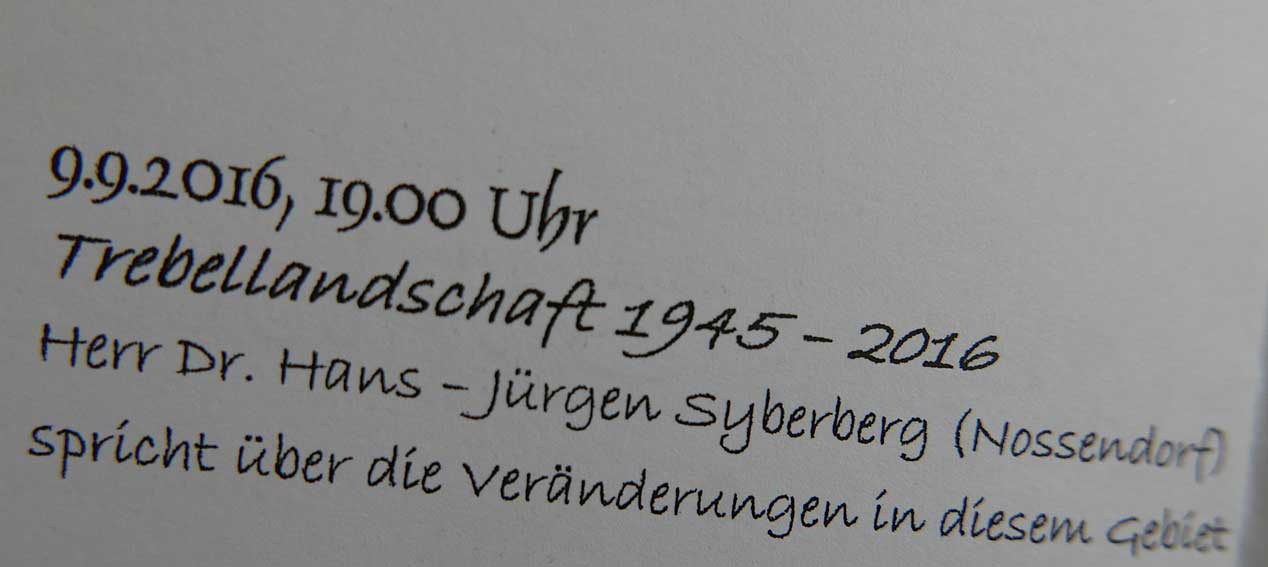 9.9.2016, 19.00 Uhr
Trebellandschaft 1945 - 2016
Herr Dr. Hans - Jürgen Syberberg (Nossendorf)
spricht über die Veränderungen in diesem Gebiet